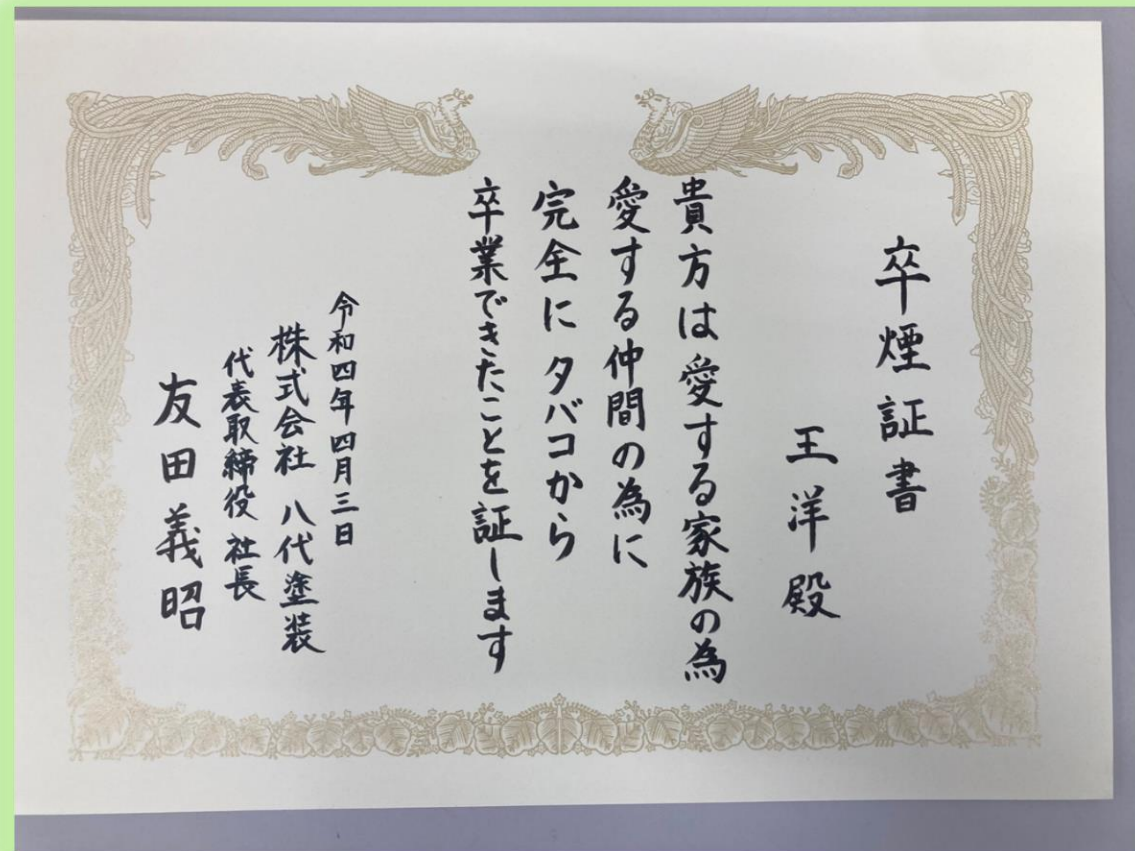 卒煙証書
王洋殿
貴方は愛する家族の為
愛する仲間の為に
完全にタバコから
卒業できたことを証します
令和四年四月三日
株式会社 八代塗装
代表取締役 社長
友田義昭